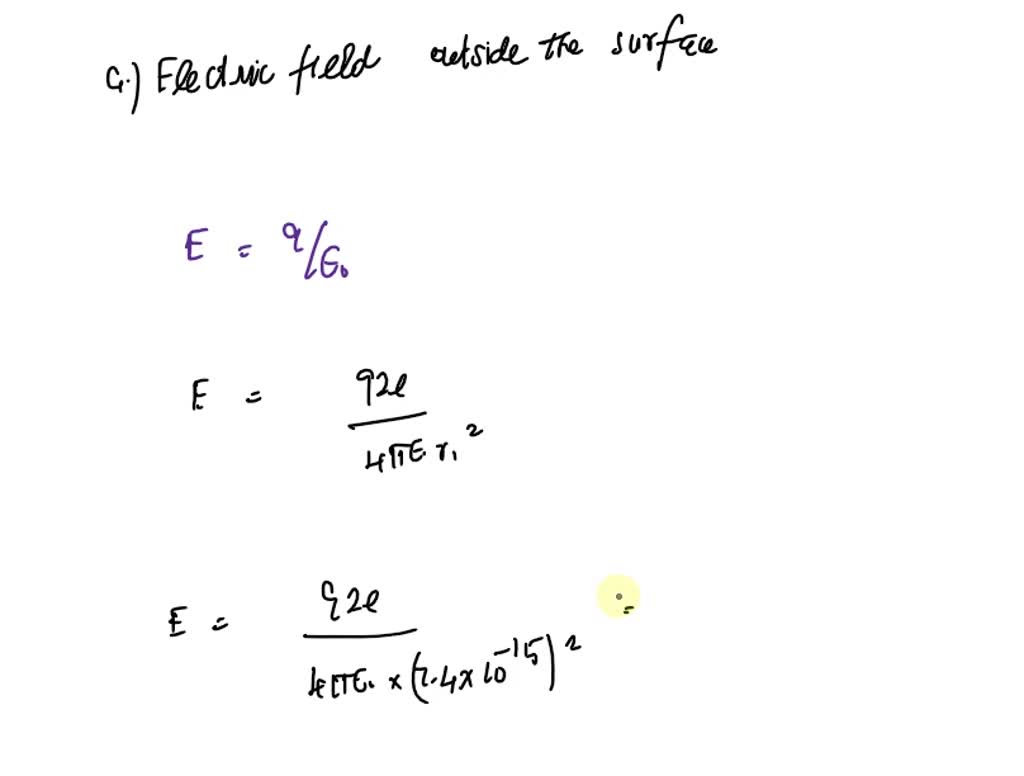 a.) Electric field outside the surface
E = q/ϵ₀
E = 92e / 4πϵ₀ r₁²
E = 92e / 4πϵ₀ × (7.4 × 10⁻¹⁵)² =